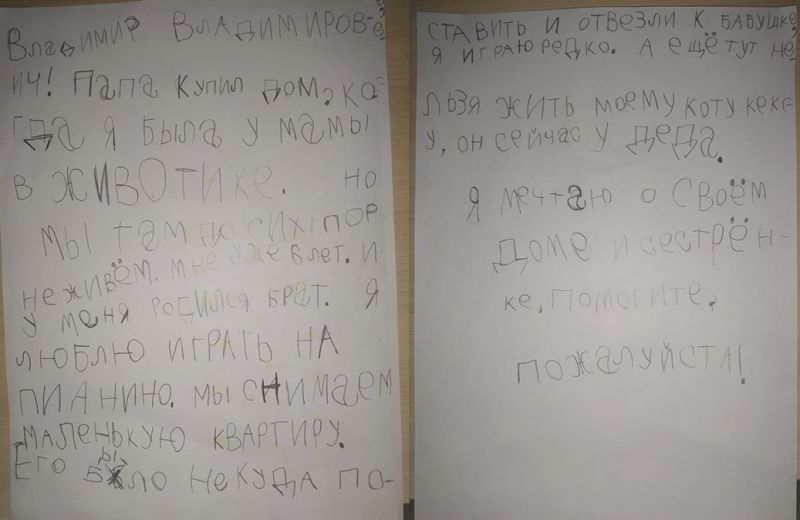 Владимир Владимиров-
ич! Папа купил дом, ко-
гда я была у мамы
в животике. но
мы там до сих пор
не живём. мне уже 6 лет. и
у меня родился брат. я
люблю играть на
пианино. мы снимаем
маленькую квартиру.
Его было некуда по-
ставить и отвезли к бабушке,
я играю редко. а ещё тут не
льзя жить моему коту кекс-
у, он сейчас у деда.
я мечтаю о своём
доме и сестрён-
ке, помогите,
пожалуйста!